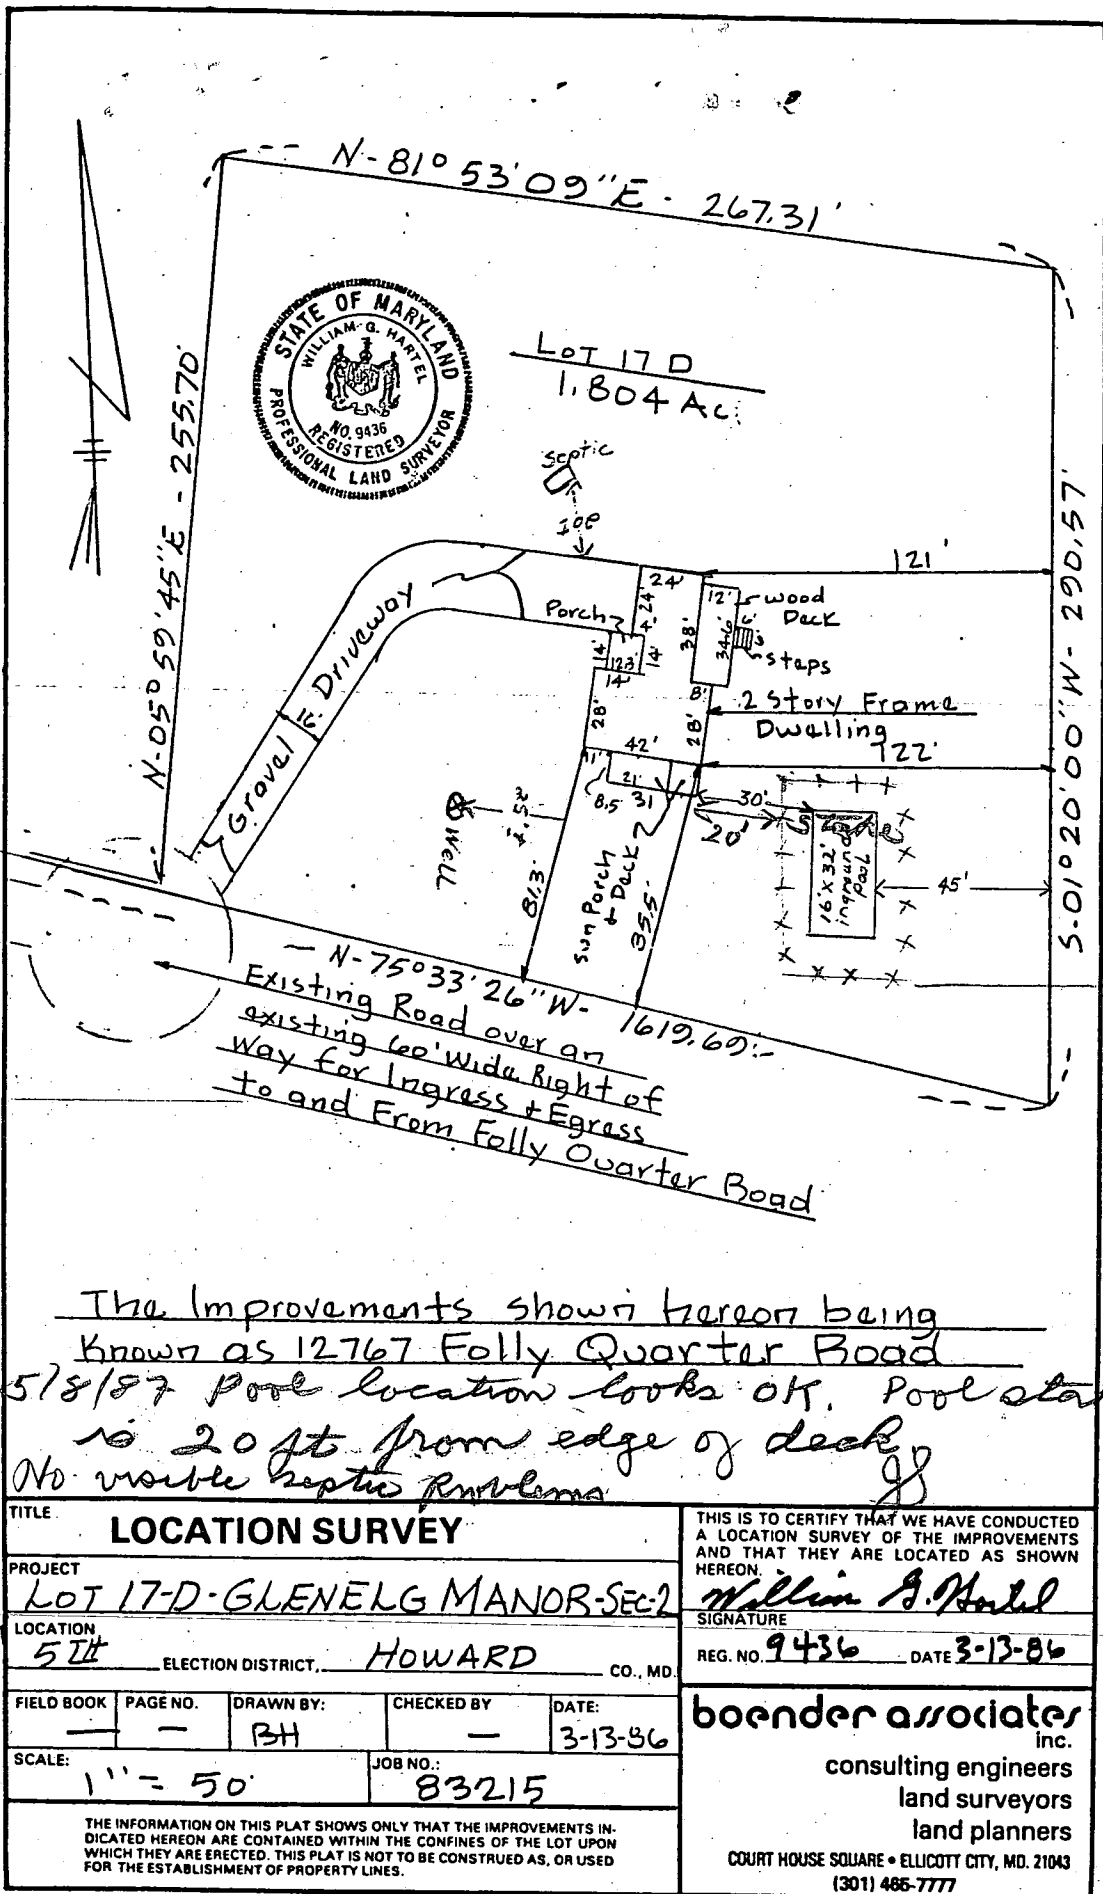 N-81° 53' 09" E - 267.31'
STATE OF MARYLAND
WILLIAM G. HARTEL
NO. 9436
REGISTERED
PROFESSIONAL LAND SURVEYOR
LOT 17 D
1.804 Ac.
N-05° 59' 45" E - 255.70'
S-01° 20' 00" W - 290.57'
Septic
100
121'
Gravel Driveway
16'
Porch
24'
24'
4'
14'
12.3'
14'
14'
12'
38'
34.6'
Wood
Deck
Steps
8'
28'
28'
42'
2 Story Frame
Dwelling
122'
11'
21'
8.5
31
30'
20'
Well
81.3'
Sun Porch
+ Deck
16' X 32'
inground
pool
45'
N-75° 33' 26" W - 1619.69'
Existing Road over an
existing 60' wide Right of
Way for Ingress + Egress
to and From Folly Quarter Road
The Improvements shown hereon being
Known as 12767 Folly Quarter Road
5/8/87 Pool location looks OK. Pool
is 20 ft from edge of deck.
No visible septic problems
TITLE
LOCATION SURVEY
PROJECT
LOT 17-D-GLENELG MANOR-SEC-2
LOCATION
5TH ELECTION DISTRICT, HOWARD CO., MD.
FIELD BOOK PAGE NO. DRAWN BY: CHECKED BY DATE:
— — BH — 3-13-86
SCALE: JOB NO.:
1" = 50' 83215
THE INFORMATION ON THIS PLAT SHOWS ONLY THAT THE IMPROVEMENTS IN-
DICATED HEREON ARE CONTAINED WITHIN THE CONFINES OF THE LOT UPON
WHICH THEY ARE ERECTED. THIS PLAT IS NOT TO BE CONSTRUED AS, OR USED
FOR THE ESTABLISHMENT OF PROPERTY LINES.
THIS IS TO CERTIFY THAT WE HAVE CONDUCTED
A LOCATION SURVEY OF THE IMPROVEMENTS
AND THAT THEY ARE LOCATED AS SHOWN
HEREON.
William G. Hartel
SIGNATURE
REG. NO. 9436 DATE 3-13-86
boender associates
inc.
consulting engineers
land surveyors
land planners
COURT HOUSE SQUARE • ELLICOTT CITY, MD. 21043
(301) 465-7777